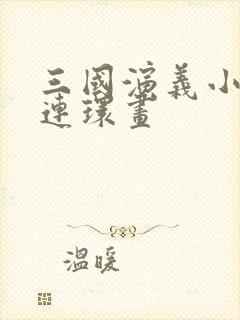 三國演義小
連環畫
溫暖